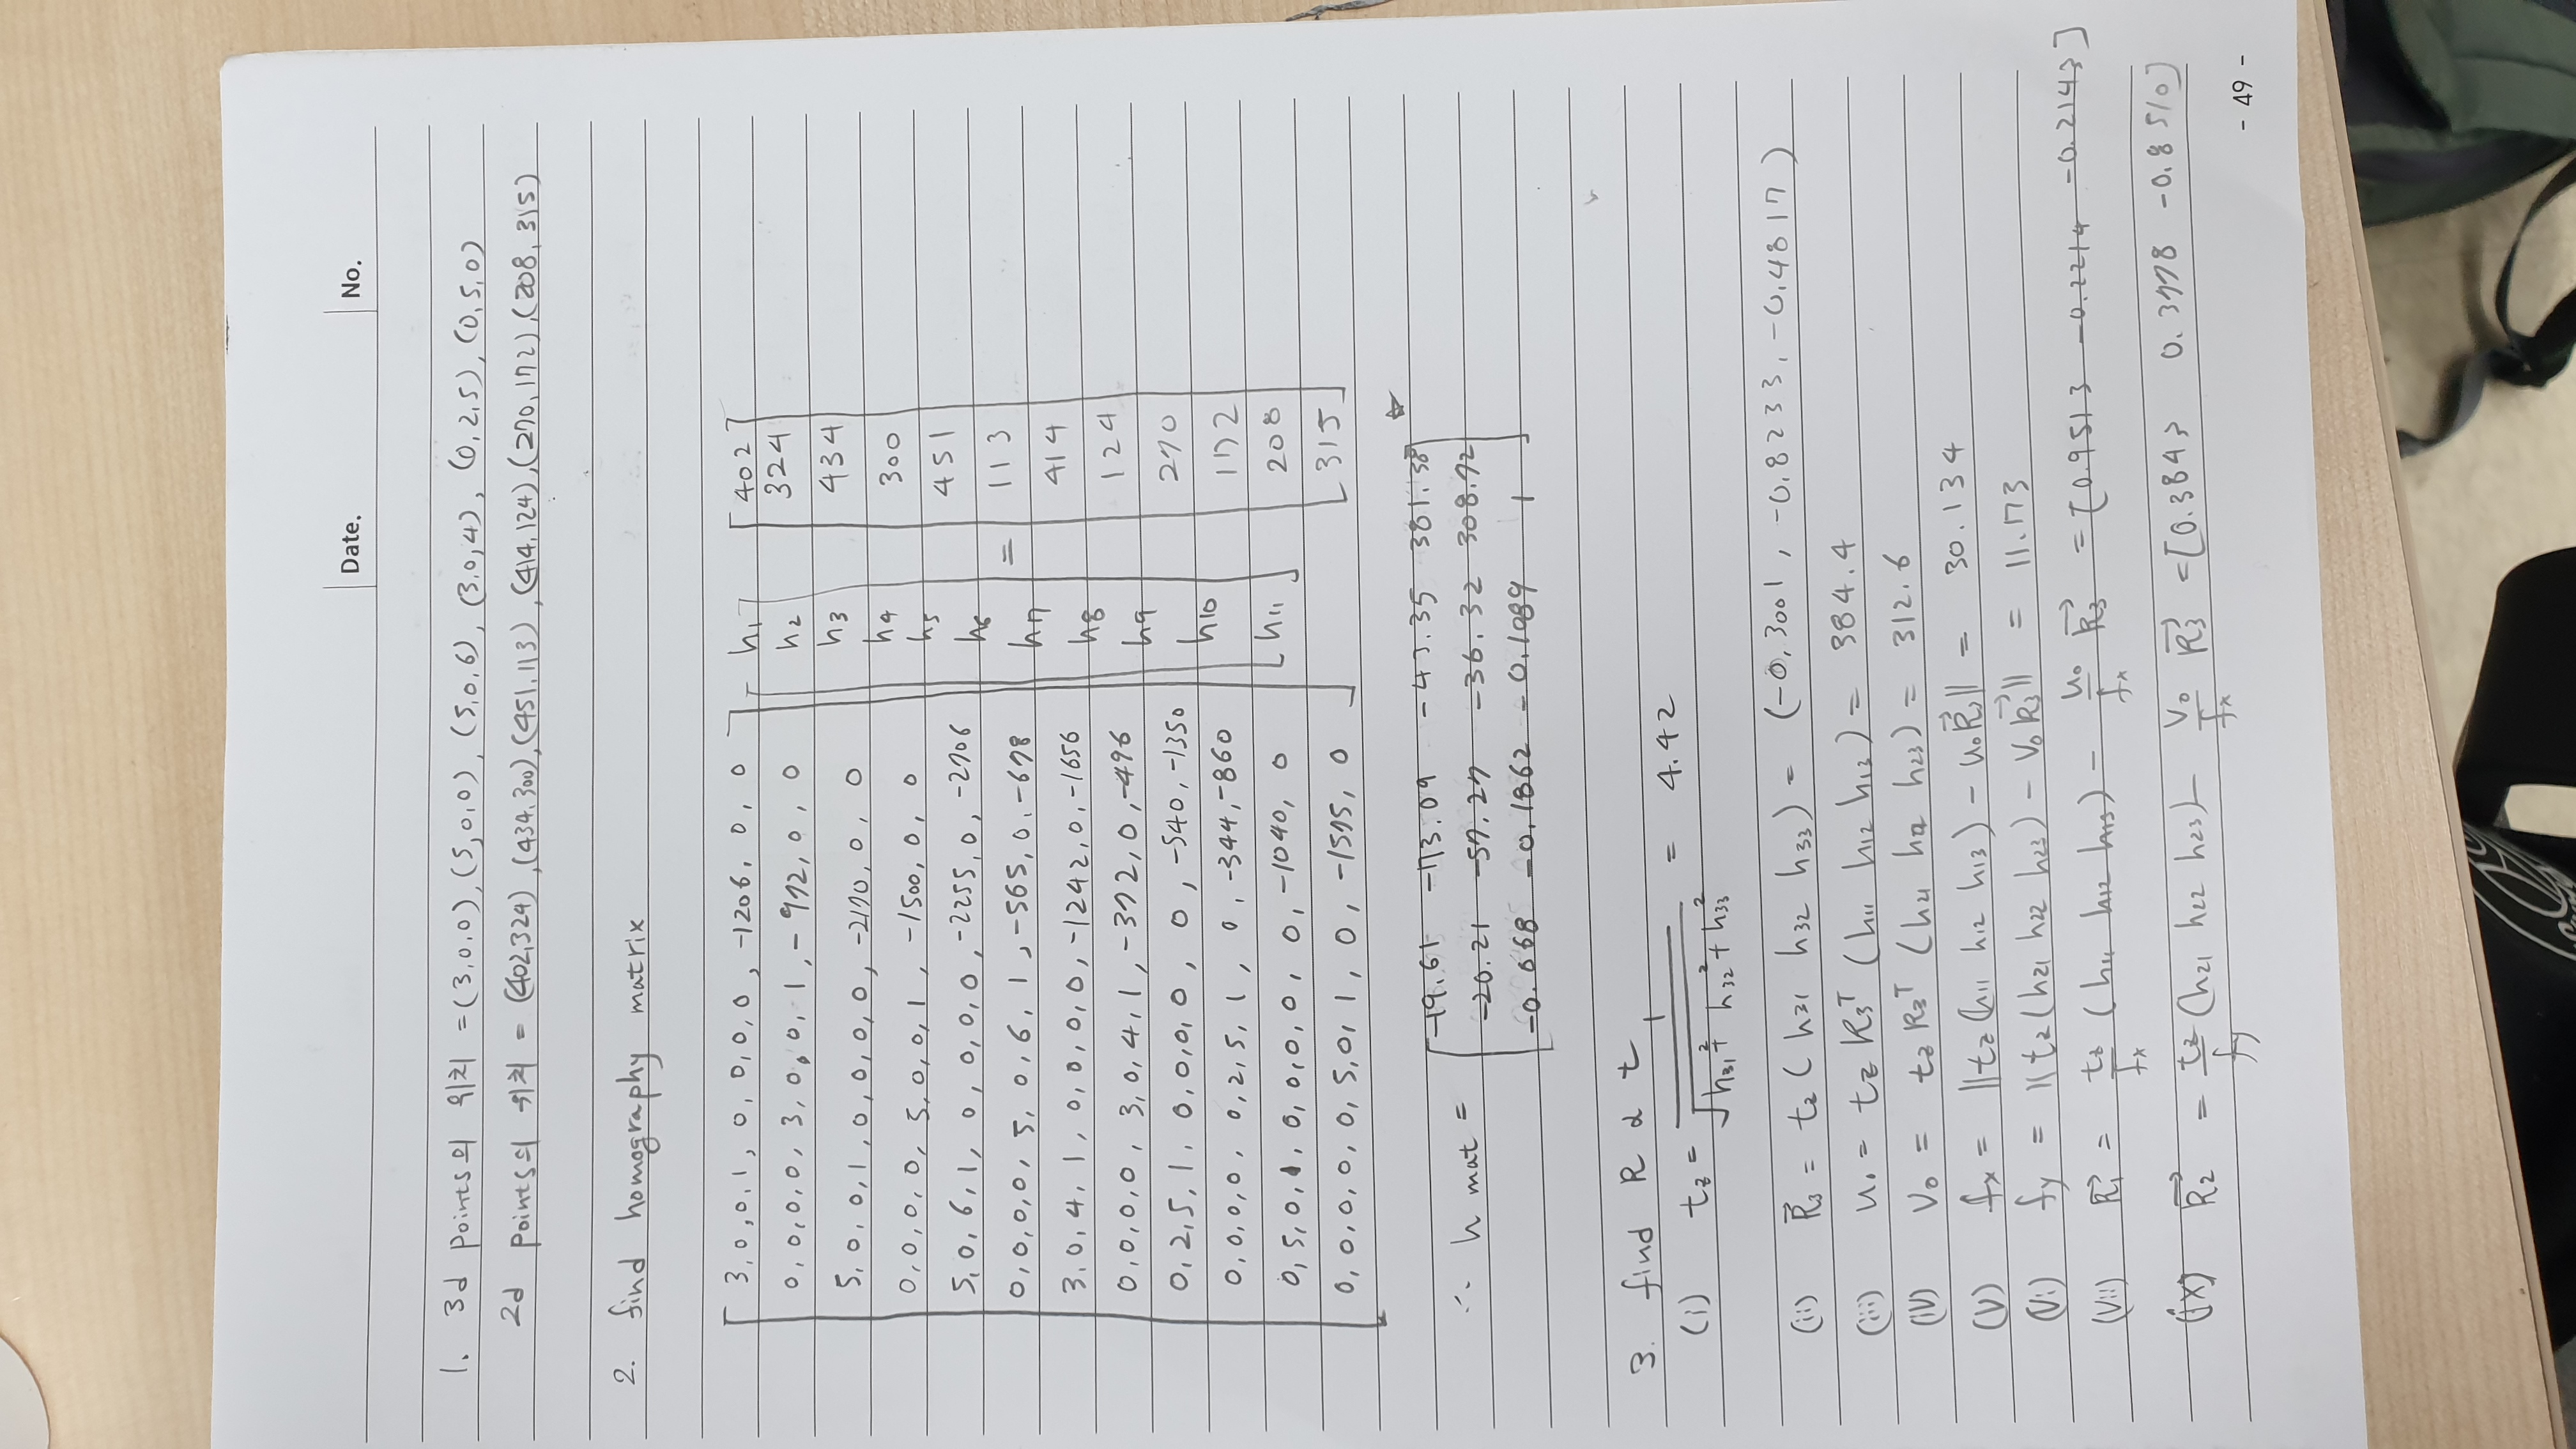 Date. No.
1. 3d points의 위치 = (3,0,0), (5,0,0), (5,0,6), (3,0,4), (0,2,5), (0,5,0)
2d points의 위치 = (402,324), (434,300), (451,113), (414,124), (270,172), (208,315)
2. find homography matrix
3,0,0,1, 0,0,0,0, -1206, 0, 0 h1 402
0,0,0,0, 3,0,0,1, -972, 0, 0 h2 324
5,0,0,1, 0,0,0,0, -2170, 0, 0 h3 434
0,0,0,0, 5,0,0,1, -1500, 0, 0 h4 300
5,0,6,1, 0,0,0,0, -2255, 0, -2706 h5 451
0,0,0,0, 5,0,6,1, -565, 0, -678 h6 = 113
3,0,4,1, 0,0,0,0, -1242, 0, -1656 h7 414
0,0,0,0, 3,0,4,1, -372, 0, -496 h8 124
0,2,5,1, 0,0,0,0, 0, -540, -1350 h9 270
0,0,0,0, 0,2,5,1, 0, -344, -860 h10 172
0,5,0,1, 0,0,0,0, 0, -1040, 0 h11 208
0,0,0,0, 0,5,0,1, 0, -1575, 0 315
∴ h mat = -19.61 -73.09 -43.35 381.38
-20.21 -57.27 -36.32 308.72
-0.068 -0.1862 -0.1089 1
3. find R & t
(i) tz = 1/√(h31² + h32² + h33²) = 4.42
(ii) R3 = tz (h31 h32 h33) = (-0.3001, -0.8233, -0.4817)
(iii) u0 = tz R3^T (h11 h12 h13) = 384.4
(iv) V0 = tz R3^T (h21 h22 h23) = 312.6
(V) fx = ||tz(h11 h12 h13) - u0R3|| = 30.134
(Vi) fy = ||tz(h21 h22 h23) - V0R3|| = 11.73
(Vii) R1 = tz/fx (h11 h12 h13) - u0/fx R3 = [0.9513 -0.2214 -0.2143]
(ix) R2 = tz/fy (h21 h22 h23) - V0/fx R3 = [0.3843 0.3778 -0.8510]
- 49 -